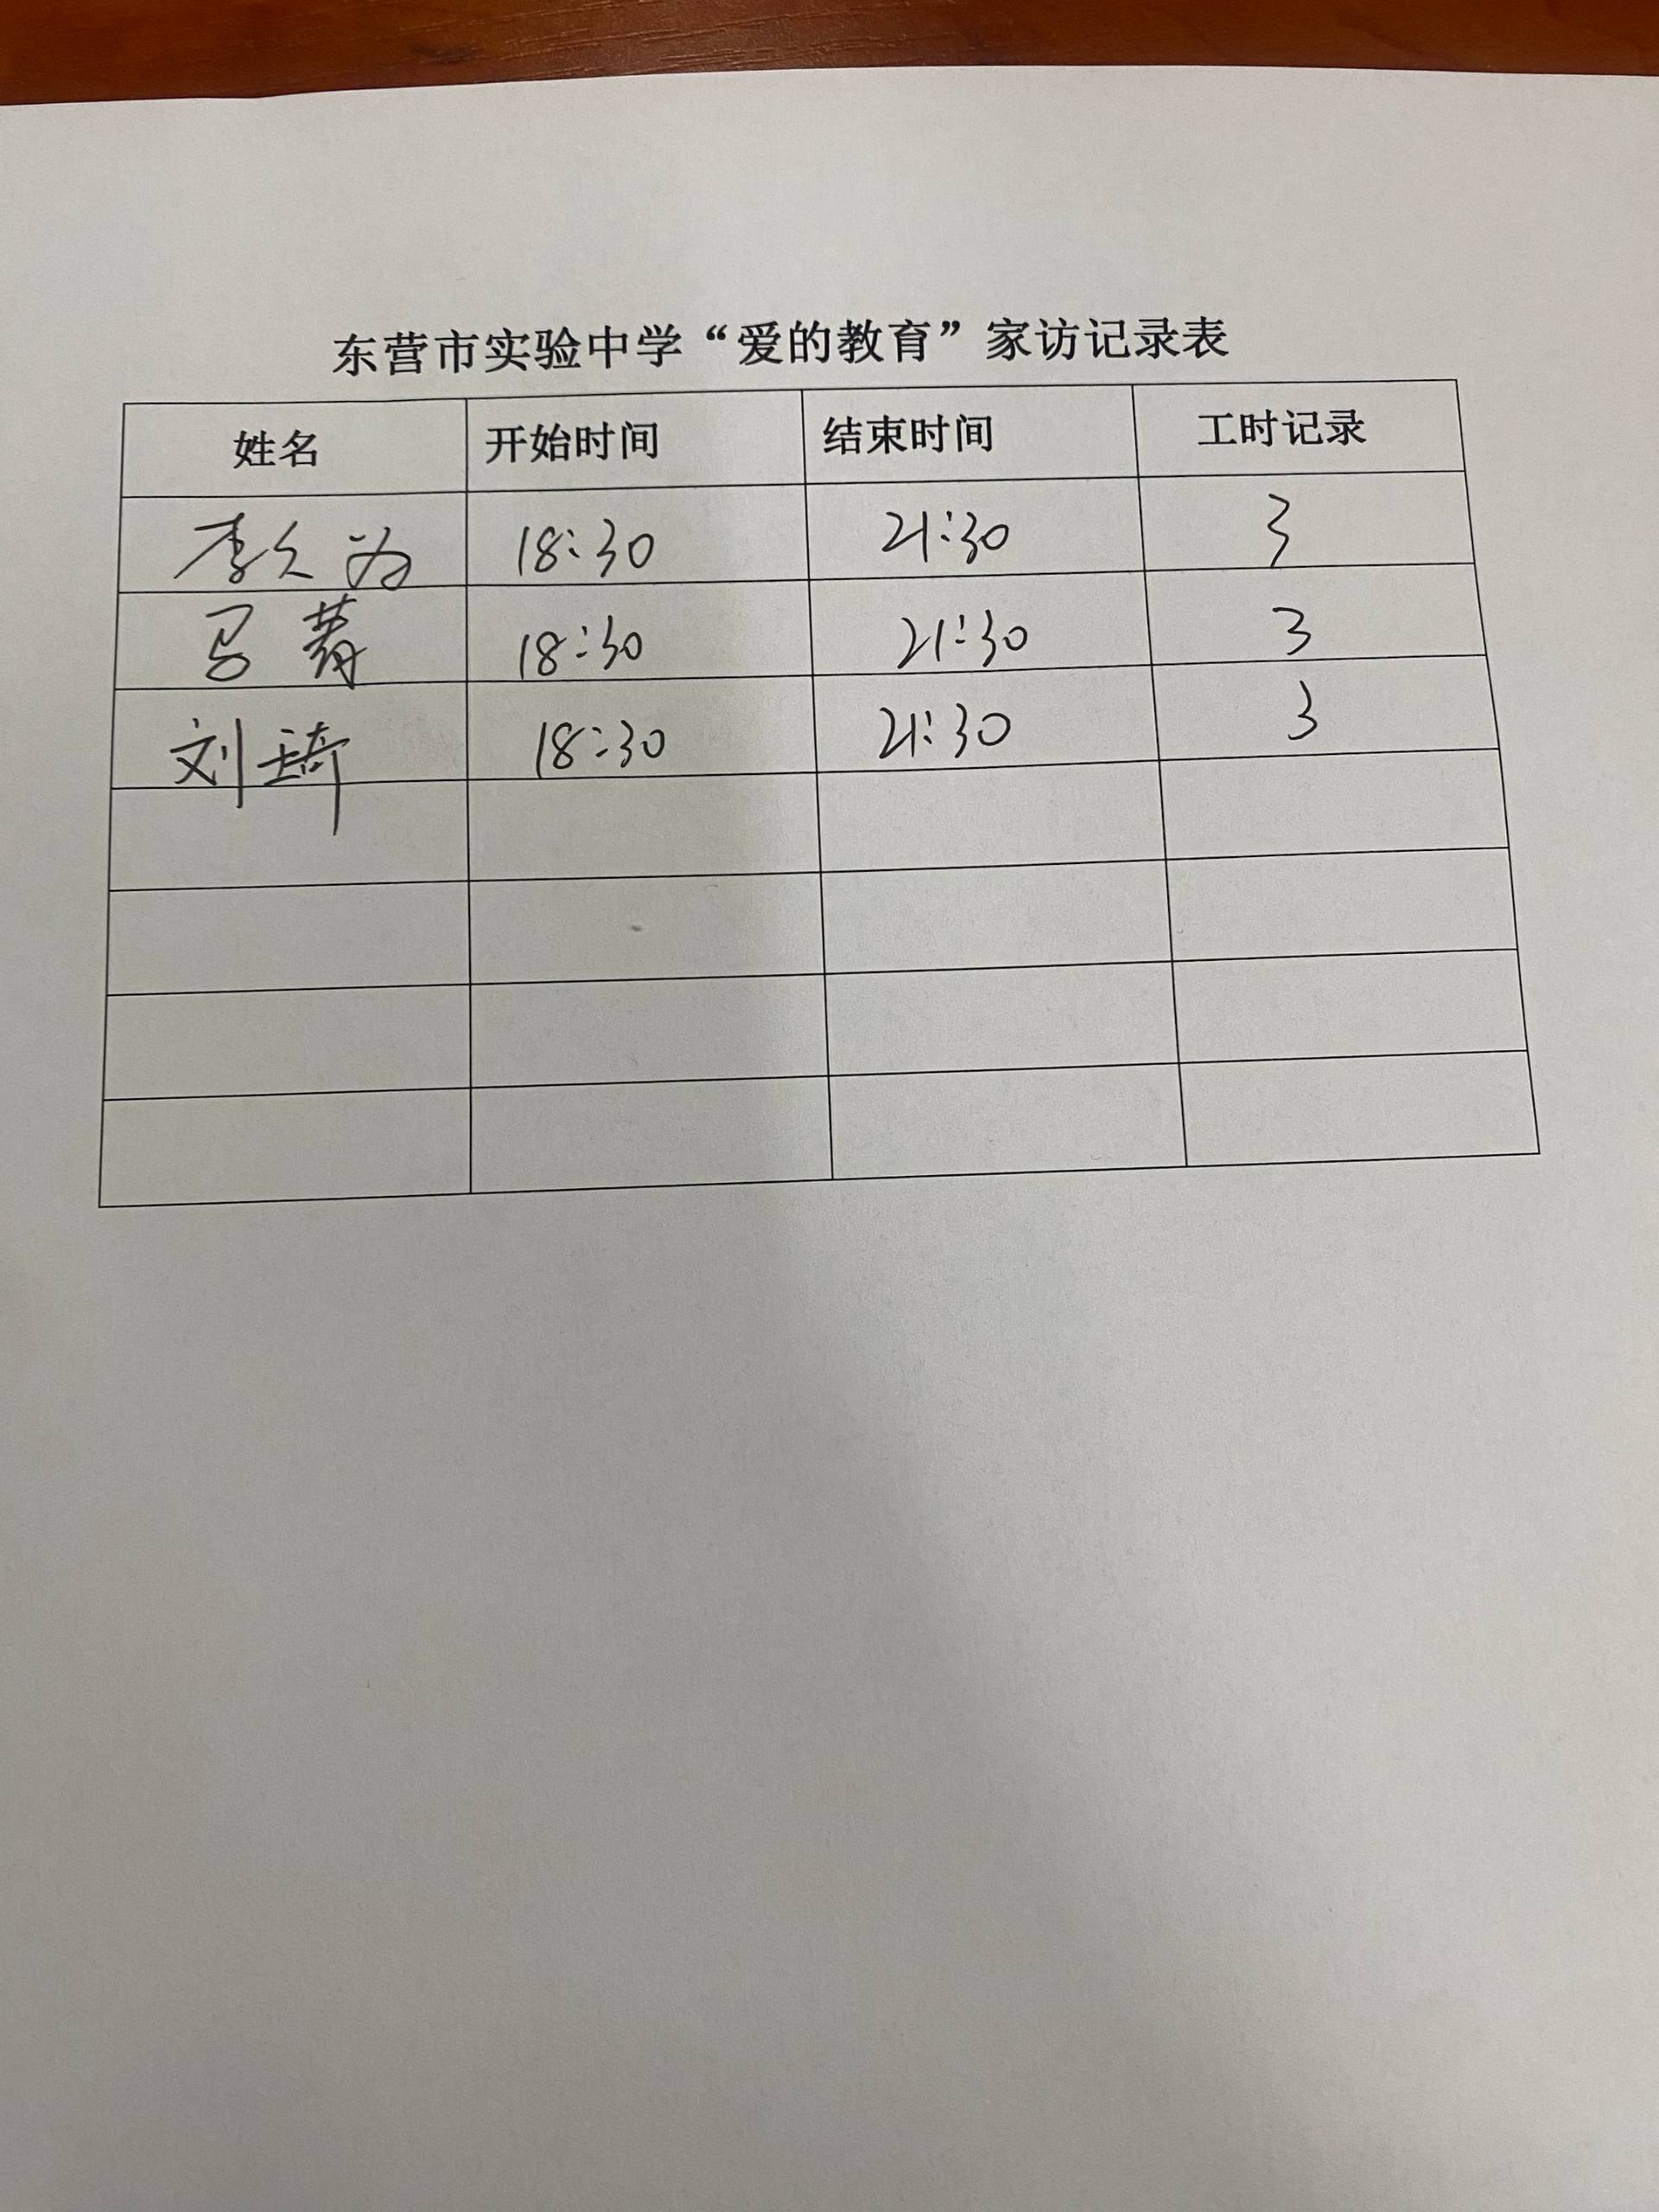 东营市实验中学“爱的教育”家访记录表
姓名 开始时间 结束时间 工时记录
李久为 18:30 21:30 3
马菁 18:30 21:30 3
刘琦 18:30 21:30 3